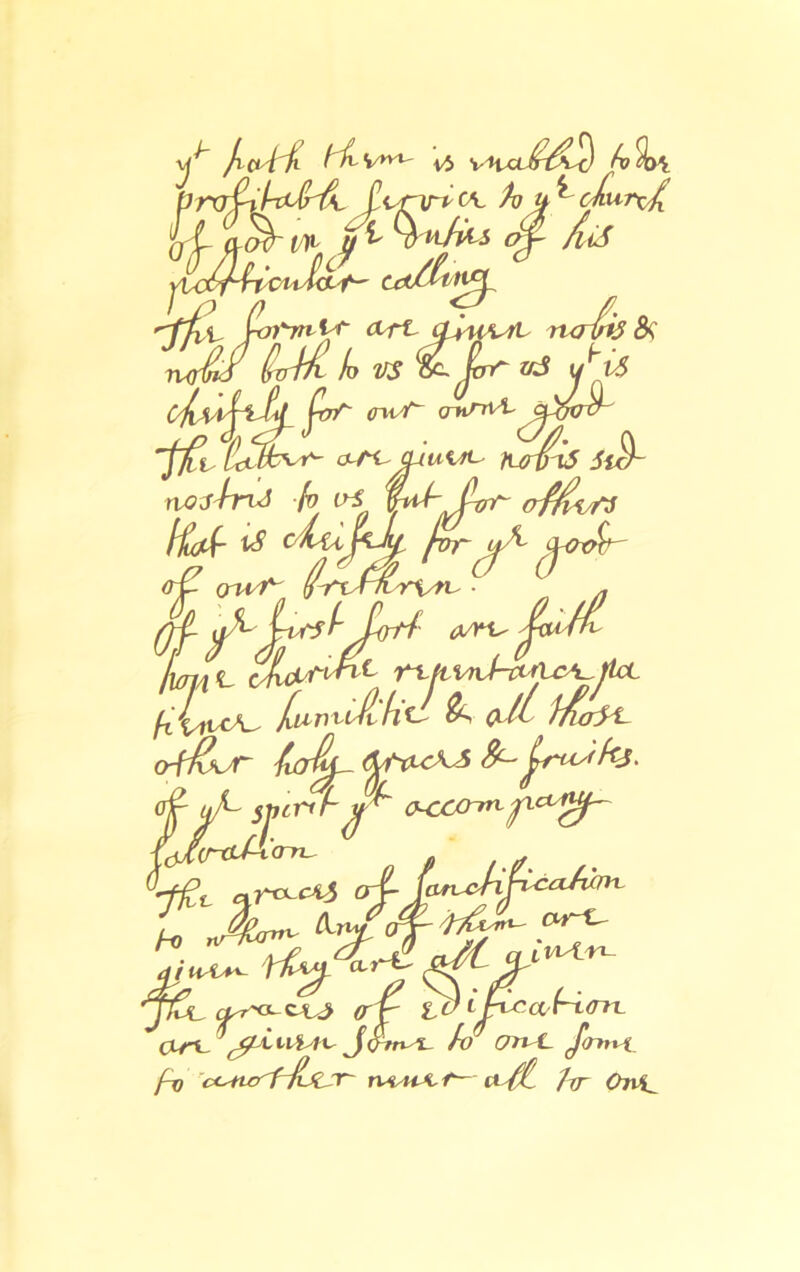 yt hath them is inabled to be
profitable seruice to yt church
of god in yt duties of his
particular calling
The former are giuen nobis &
nobis both to vs & for vs yt is
chiefely for our owne good
The latter are giuen nobis sed
nostris to vs but for others
that is chiefely for yt good
of our brethren.
Of yt first sort are faith
hope charitie repentance pa
tience humilitie & all those
other holy graces & fruits.
of yt spirit yt accompany
saluation
The graces of sanctification
to whom any of them are
giuen they are all giuen
The graces of edification
are giuen some to one some
to another neuer all to one